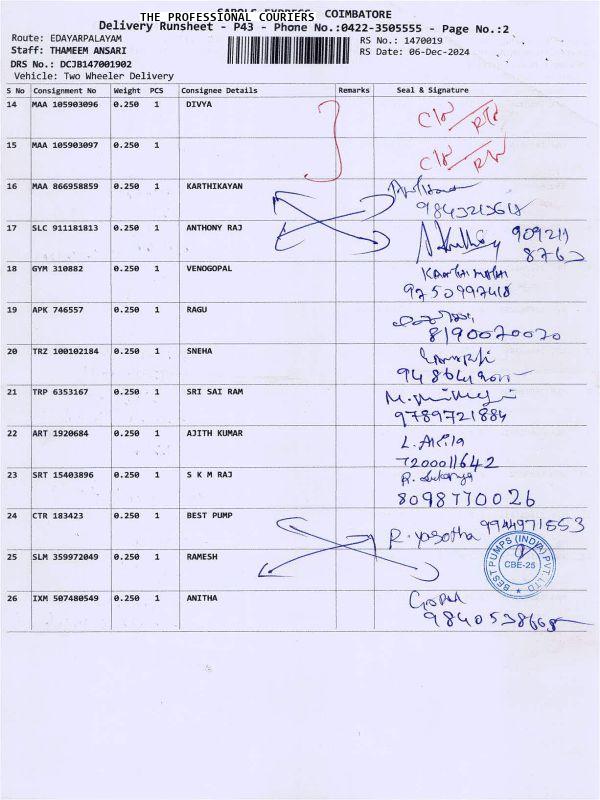 THE PROFESSIONAL COURIERS COIMBATORE
Delivery Runsheet - P43 - Phone No.:0422-3505555 - Page No.:2
Route: EDAYARPALAYAM RS No.: 1470019
Staff: THAMEEM ANSARI RS Date: 06-Dec-2024
DRS No.: DCJB147001902
Vehicle: Two Wheeler Delivery
S No Consignment No Weight PCS Consignee Details Remarks Seal & Signature
14 MAA 105903096 0.250 1 DIVYA
15 MAA 105903097 0.250 1
16 MAA 866958859 0.250 1 KARTHIKAYAN
17 SLC 911181813 0.250 1 ANTHONY RAJ 909211
8763
18 GYM 310882 0.250 1 VENOGOPAL
9750997418
19 APK 746557 0.250 1 RAGU
8190070070
20 TRZ 100102184 0.250 1 SNEHA
21 TRP 6353167 0.250 1 SRI SAI RAM
9789721884
22 ART 1920684 0.250 1 AJITH KUMAR L. Akila
7200011642
23 SRT 15403896 0.250 1 S K M RAJ R. Sukanya
8098770026
24 CTR 183423 0.250 1 BEST PUMP R. yasotha 9944971553
BEST PUMPS (INDIA) PVT. LTD
CBE-25
25 SLM 359972049 0.250 1 RAMESH
26 IXM 507480549 0.250 1 ANITHA Gopal